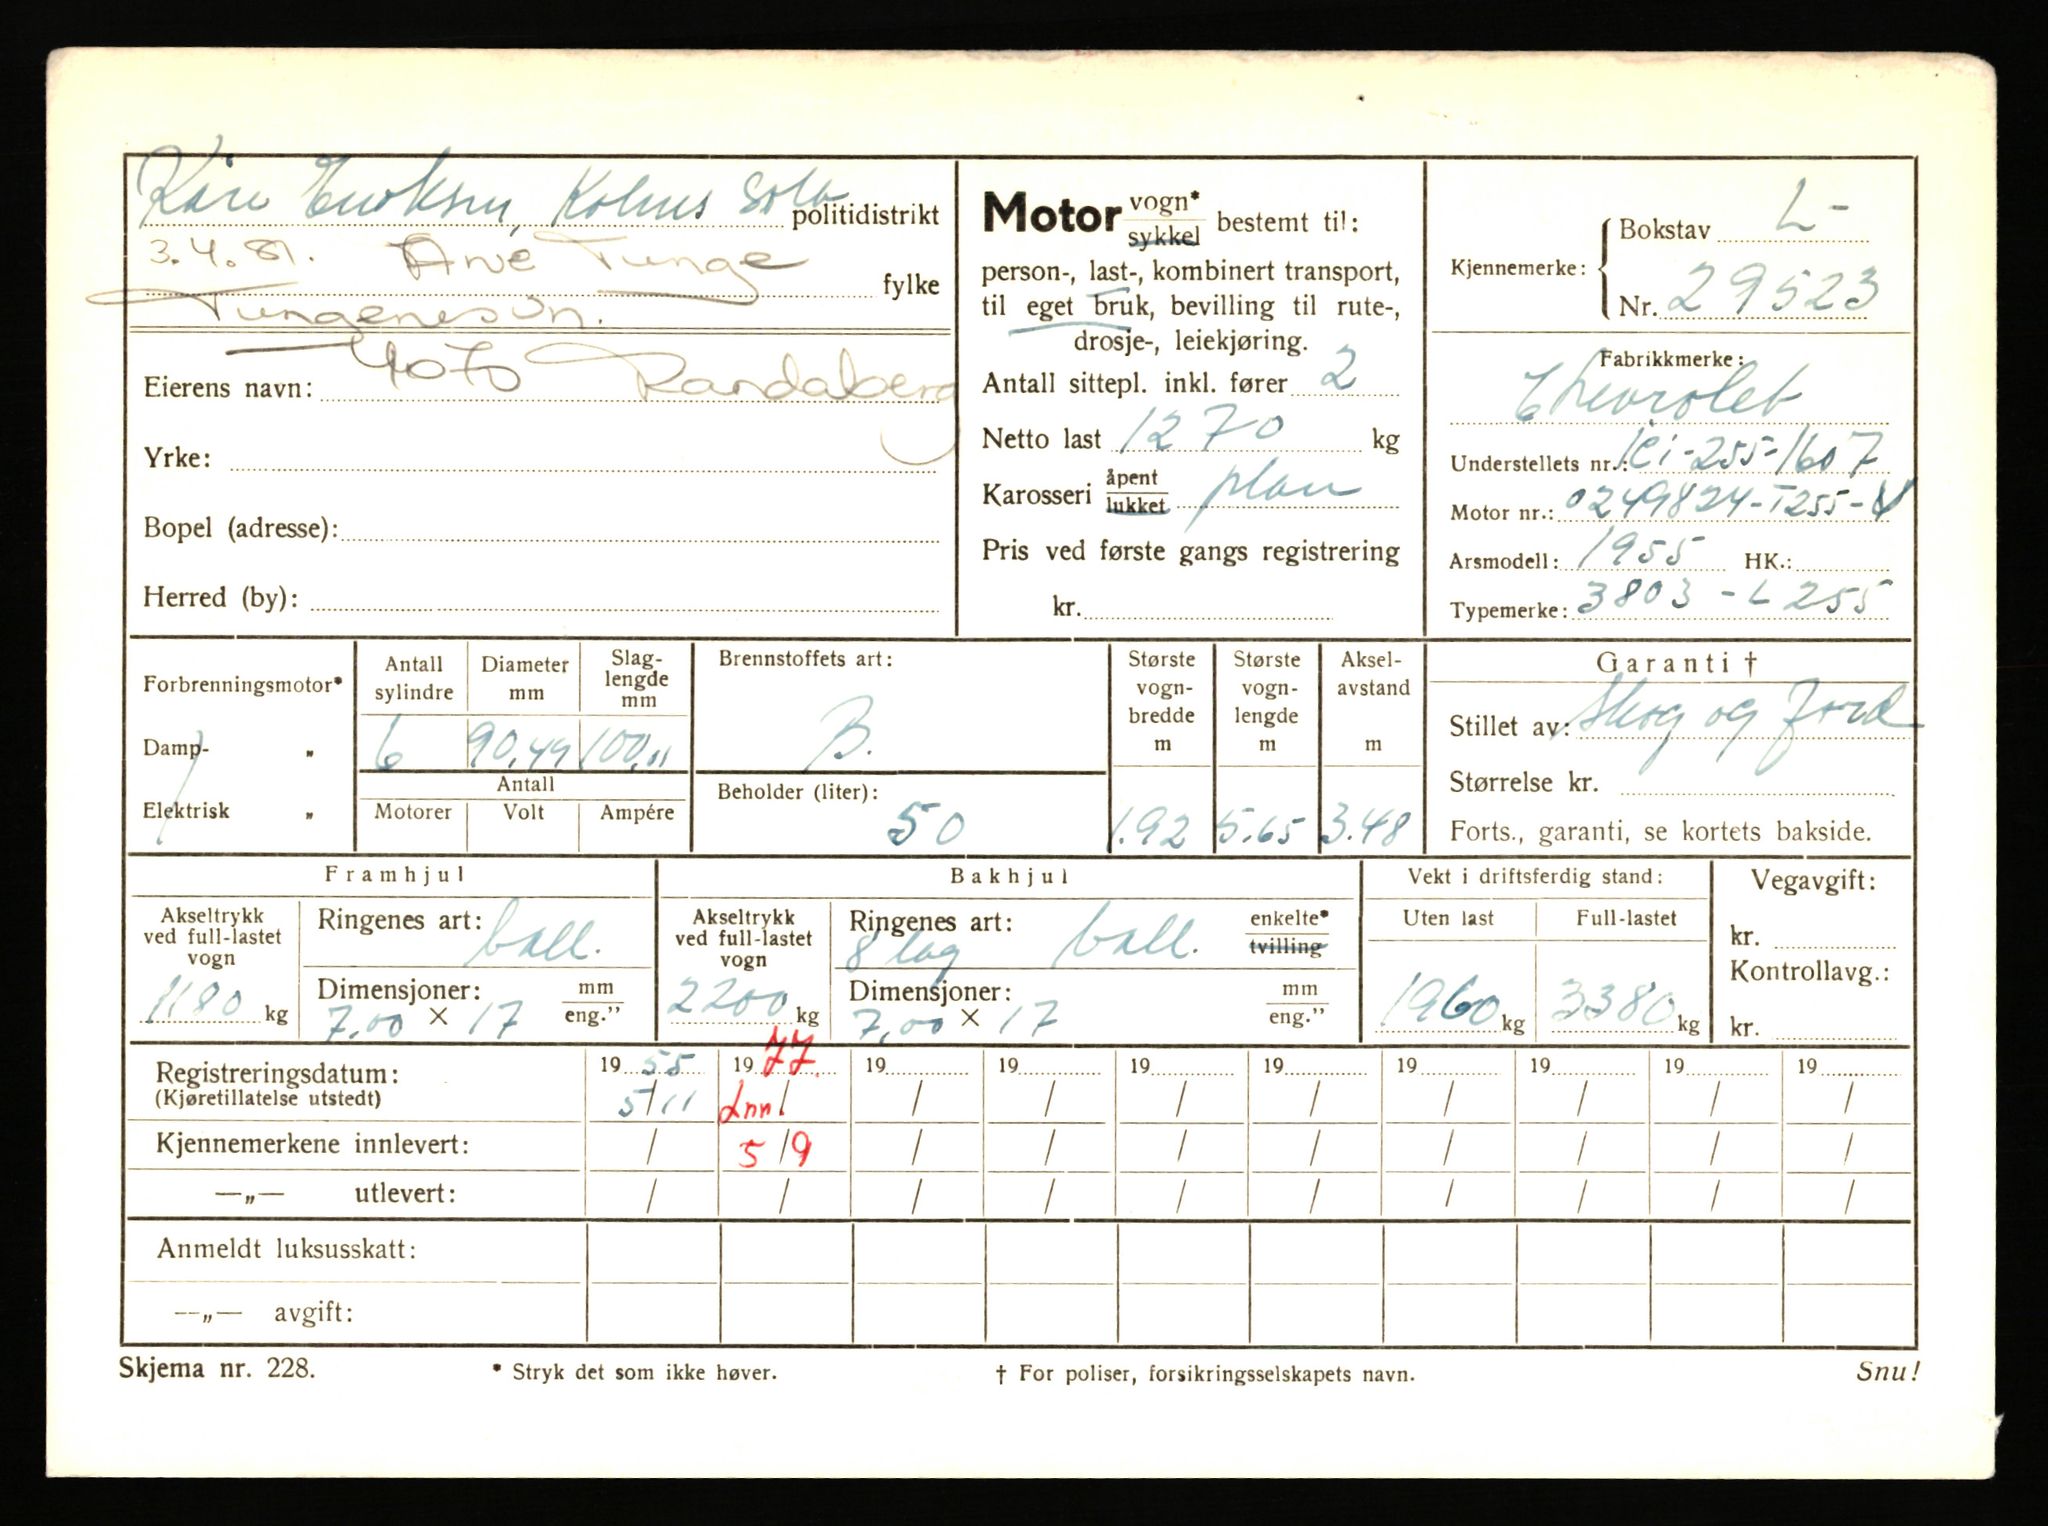 Kåre Eriksen, Kolnes Sola politidistrikt
3.4.81. Arve Tunge fylke
Tungenesvn.
4070 Randaberg
Eierens navn:
Yrke:
Bopel (adresse):
Herred (by):
Motor vogn* sykkel bestemt til:
person-, last-, kombinert transport,
til eget bruk, bevilling til rute-,
drosje-, leiekjøring.
Antall sittepl. inkl. fører 2
Netto last 1270 kg
Karosseri åpent lukket plan
Pris ved første gangs registrering
kr.
Kjennemerke: Bokstav L-
Nr. 29523
Fabrikkmerke:
Chevrolet
Understellets nr.: ICi-255-1607
Motor nr.: 0249824-T255-Y
Arsmodell: 1955 HK.:
Typemerke: 3803-L255
Forbrenningsmotor*
Damp- „
Elektrisk „
Antall sylindre 6
Diameter mm 90,49
Slag-lengde mm 100,11
Antall
Motorer Volt Ampére
Brennstoffets art:
B.
Beholder (liter):
50
Største vogn-bredde m 1.92
Største vogn-lengde m 5.65
Aksel-avstand m 3.48
Garanti †
Stillet av: Skog og Jord
Størrelse kr.
Forts., garanti, se kortets bakside.
Framhjul
Akseltrykk ved full-lastet vogn 1180 kg
Ringenes art: ball.
Dimensjoner: mm eng."
7,00 × 17
Bakhjul
Akseltrykk ved full-lastet vogn 2200 kg
Ringenes art: 8 lag ball. enkelte* tvilling
Dimensjoner: mm eng."
7,00 × 17
Vekt i driftsferdig stand:
Uten last Full-lastet
1960 kg 3380 kg
Vegavgift:
kr.
Kontrollavg.:
kr.
Registreringsdatum: 19 55 19 77. 19 19 19 19 19 19 19 19
(Kjøretillatelse utstedt) 5/11 Inn/ / / / / / / / /
Kjennemerkene innlevert: / 5/9 / / / / / / / /
—„— utlevert: / / / / / / / / / /
Anmeldt luksusskatt:
—„— avgift:
Skjema nr. 228. * Stryk det som ikke høver. † For poliser, forsikringsselskapets navn. Snu!